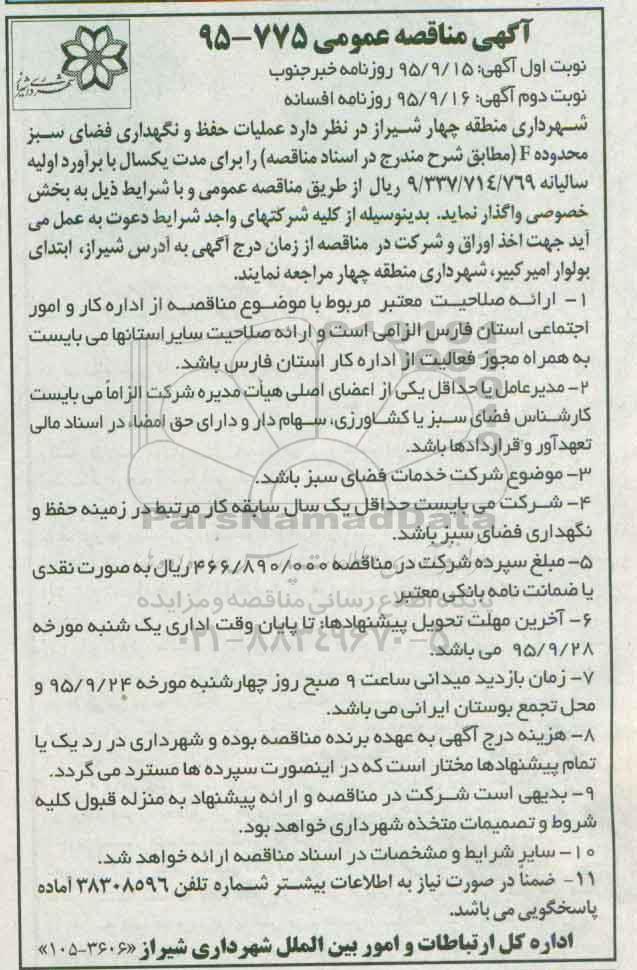 آگهی مناقصه عمومی ۷۷۵-۹۵
نوبت اول آگهی: ۹۵/۹/۱۵ روزنامه خبرجنوب
نوبت دوم آگهی: ۹۵/۹/۱۶ روزنامه افسانه
شهرداری منطقه چهار شیراز در نظر دارد عملیات حفظ و نگهداری فضای سبز
محدوده F (مطابق شرح مندرج در اسناد مناقصه) را برای مدت یکسال با برآورد اولیه
سالیانه ۹/۳۳۷/۷۱٤/۷٦۹ ریال از طریق مناقصه عمومی و با شرایط ذیل به بخش
خصوصی واگذار نماید. بدینوسیله از کلیه شرکتهای واجد شرایط دعوت به عمل می
آید جهت اخذ اوراق و شرکت در مناقصه از زمان درج آگهی به آدرس شیراز، ابتدای
بولوار امیرکبیر، شهرداری منطقه چهار مراجعه نمایند.
۱- ارائه صلاحیت معتبر مربوط با موضوع مناقصه از اداره کار و امور
اجتماعی استان فارس الزامی است و ارائه صلاحیت سایر استانها می بایست
به همراه مجوز فعالیت از اداره کار استان فارس باشد.
۲- مدیرعامل یا حداقل یکی از اعضای اصلی هیأت مدیره شرکت الزاماً می بایست
کارشناس فضای سبز یا کشاورزی، سهام دار و دارای حق امضاء در اسناد مالی
تعهدآور و قراردادها باشد.
۳- موضوع شرکت خدمات فضای سبز باشد.
۴- شرکت می بایست حداقل یک سال سابقه کار مرتبط در زمینه حفظ و
نگهداری فضای سبز باشد.
۵- مبلغ سپرده شرکت در مناقصه ۴۶۶/۸۹۰/۰۰۰ ریال به صورت نقدی
یا ضمانت نامه بانکی معتبر
۶- آخرین مهلت تحویل پیشنهادها: تا پایان وقت اداری یک شنبه مورخه
۹۵/۹/۲۸ می باشد.
۷- زمان بازدید میدانی ساعت ۹ صبح روز چهارشنبه مورخه ۹۵/۹/۲۴ و
محل تجمع بوستان ایرانی می باشد.
۸- هزینه درج آگهی به عهده برنده مناقصه بوده و شهرداری در رد یک یا
تمام پیشنهادها مختار است که در اینصورت سپرده ها مسترد می گردد.
۹- بدیهی است شرکت در مناقصه و ارائه پیشنهاد به منزله قبول کلیه
شروط و تصمیمات متخذه شهرداری خواهد بود.
۱۰- سایر شرایط و مشخصات در اسناد مناقصه ارائه خواهد شد.
۱۱- ضمناً در صورت نیاز به اطلاعات بیشتر شماره تلفن ۳۸۳۰۸۵۹۶ آماده
پاسخگویی می باشد.
اداره کل ارتباطات و امور بین الملل شهرداری شیراز «۳۶۰۶-۱۰۵»
ParsNamadData
پایگاه اطلاع رسانی مناقصه و مزایده
۰۲۱-۸۸۳۴۹۶۷۰-۵